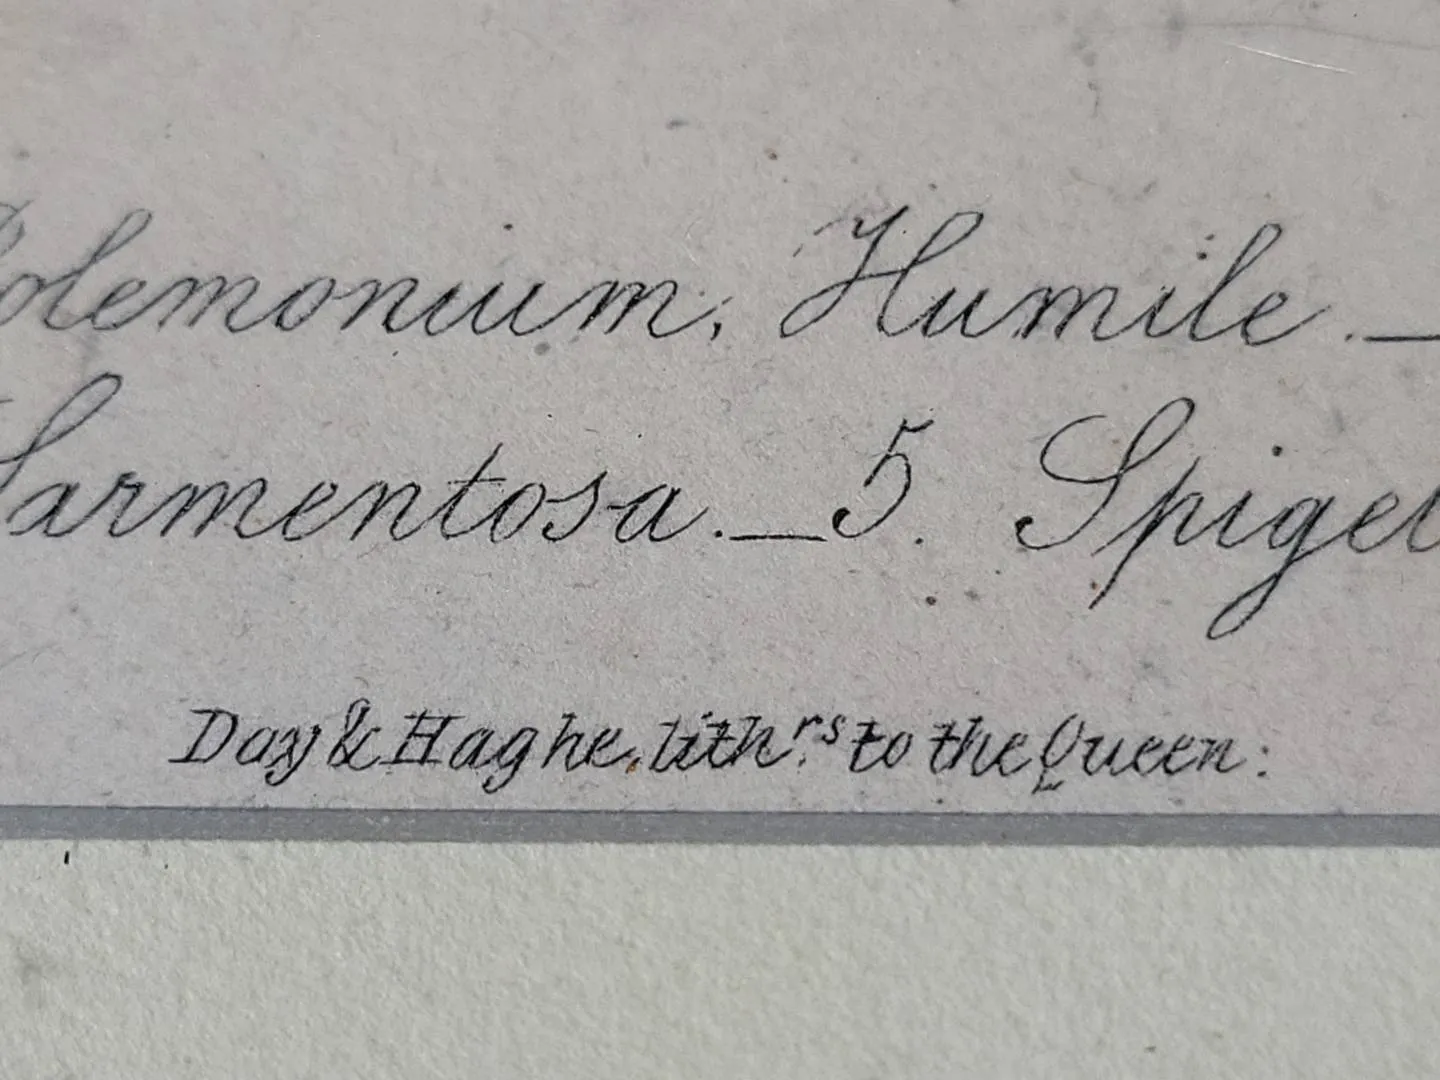 Polemonium, Humile. —
Sarmentosa. — 5. Spigel
Day & Haghe, lith.rs to the Queen: